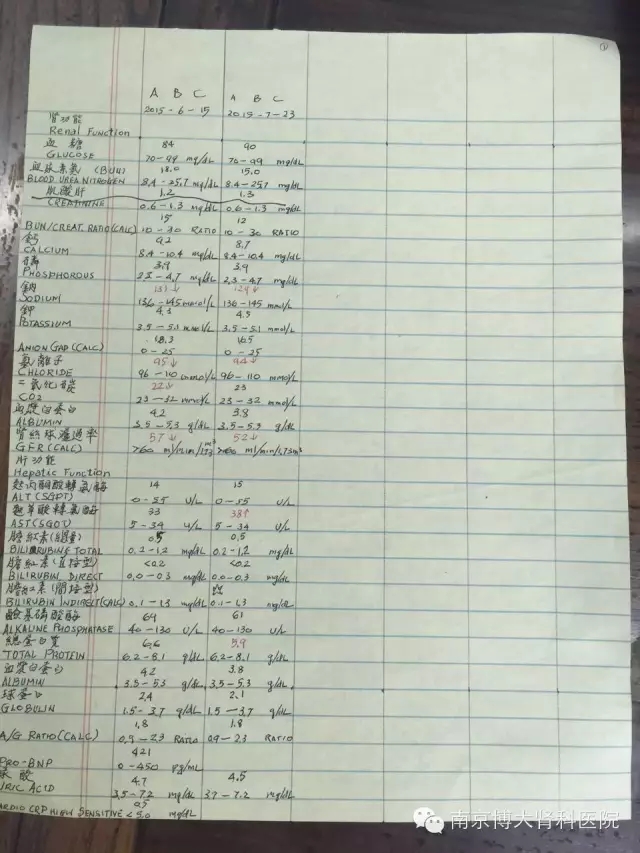 ①
A B C A B C
2015-6-15 2015-7-23
腎功能
Renal Function
血糖 84 90
GLUCOSE 70-99 mg/dL 70-99 mg/dL
血尿素氮 (BUN) 18.0 15.0
BLOOD UREA NITROGEN 8.4-25.7 mg/dL 8.4-25.7 mg/dL
肌酸肝 1.2 1.3
CREATININE 0.6-1.3 mg/dL 0.6-1.3 mg/dL
15 12
BUN/CREAT. RATIO (CALC) 10-30 RATIO 10-30 RATIO
鈣 9.2 8.7
CALCIUM 8.4-10.4 mg/dL 8.4-10.4 mg/dL
磷 3.9 3.9
PHOSPHOROUS 2.3-4.7 mg/dL 2.3-4.7 mg/dL
鈉 131↓ 129↓
SODIUM 136-145 mmol/L 136-145 mmol/L
鉀 4.3 4.5
POTASSIUM 3.5-5.1 mmol/L 3.5-5.1 mmol/L
18.3 16.5
ANION GAP (CALC) 0-25 0-25
氯離子 95↓ 94↓
CHLORIDE 96-110 mmol/L 96-110 mmol/L
二氧化碳 22↓ 23
CO2 23-32 mmol/L 23-32 mmol/L
血漿白蛋白 4.2 3.8
ALBUMIN 3.5-5.3 g/dL 3.5-5.3 g/dL
腎絲球濾過率 57↓ 52↓
GFR (CALC) >60 ml/min/1.73m² >60 ml/min/1.73m²
肝功能
Hepatic Function
14 15
ALT (SGPT) 0-55 U/L 0-55 U/L
33 38↑
AST (SGOT) 5-34 U/L 5-34 U/L
膽紅素(總量) 0.5 0.5
BILIRUBINE TOTAL 0.2-1.2 mg/dL 0.2-1.2 mg/dL
膽紅素(直接型) <0.2 <0.2
BILIRUBIN DIRECT 0.0-0.3 mg/dL 0.0-0.3 mg/dL
膽紅素(間接型)
BILIRUBIN INDIRECT (CALC) 0.1-1.3 mg/dL 0.1-1.3 mg/dL
鹼基磷酸酶 69 61
ALKALINE PHOSPHATASE 40-130 U/L 40-130 U/L
總蛋白質 6.6 5.9
TOTAL PROTEIN 6.2-8.1 g/dL 6.2-8.1 g/dL
血漿白蛋白 4.2 3.8
ALBUMIN 3.5-5.3 g/dL 3.5-5.3 g/dL
球蛋白 2.4 2.1
GLOBULIN 1.5-3.7 g/dL 1.5-3.7 g/dL
1.8 1.8
A/G RATIO (CALC) 0.9-2.3 RATIO 0.9-2.3 RATIO
421
PRO-BNP 0-450 pg/mL
尿酸 4.7 4.5
URIC ACID 3.5-7.2 mg/dL 3.7-7.2 mg/dL
0.5
CARDIO CRP HIGH SENSITIVE <5.0 mg/dL
南京博大肾科医院